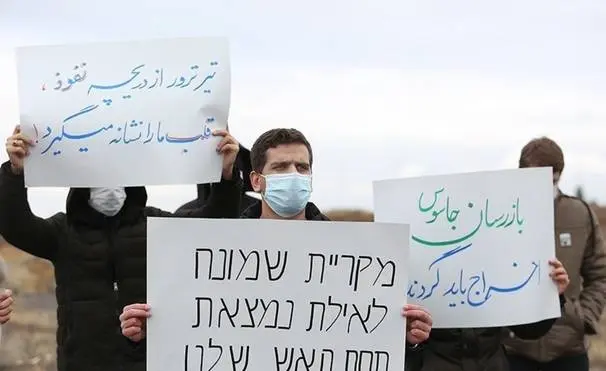 تیر ترور از دریچه نفوذ،
قلب ما را نشانه میگیرد!
מקריית שמונה
לאילת נמצאת
תחת האש שלנו
بازرسان جاسوس
اخراج باید گردند